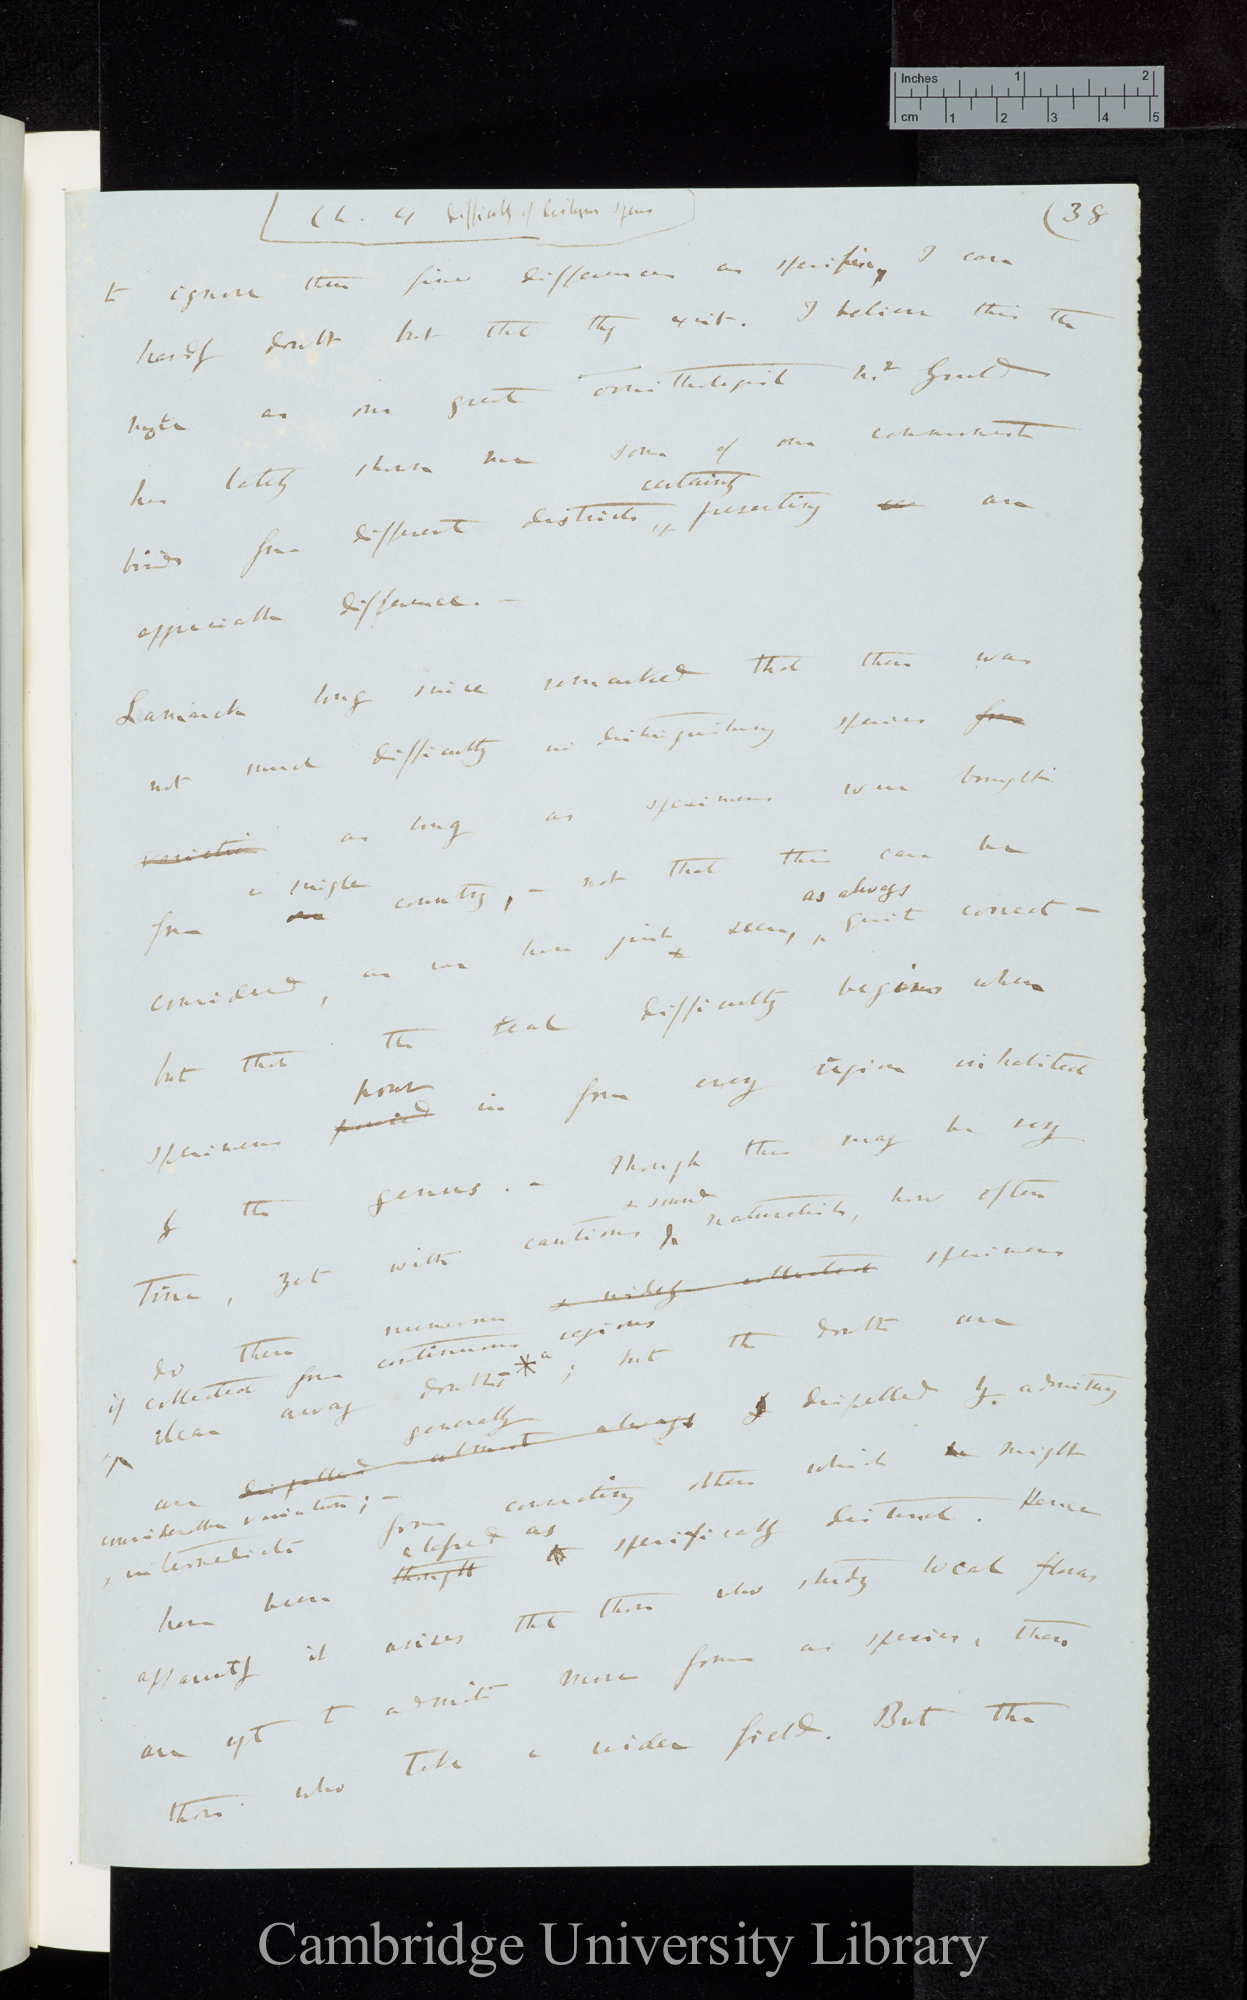 Inches 1 2
cm 1 2 3 4 5
Ch. 4 Difficulty of distinguis species
(38
to ignore these finer differences as specific, I can
hardly doubt but that they exist. I believe this the
more as our great ornithologist Mr Gould
has lately shown me some of our commonest
certainly
birds from different districts, presenting an
appreciable difference. —
Lamarck long since remarked that there was
not much difficulty in distinguishing species from
varieties as long as specimens were brought
a single
from one country, — not that this can be
as always
considered, as we have just seen, quite correct —
but that the real difficulty begins when
pour
specimens poured in from every region inhabited
by the genus. — Though this may be very
& sound
true, yet with cautious naturalists, how often
do then numerous & widely collected specimens
if collected from continuous regions
clear away doubts; but the doubts are
generally
are dispelled almost always dispelled by admitting
considerable variation; —
& intermediate forms connecting others which might
classed as
have been thought specifically distinct. Hence
apparently it arises that those who study local floras
are apt to admit more forms as species, than
those who take a wider field. But the
Cambridge University Library